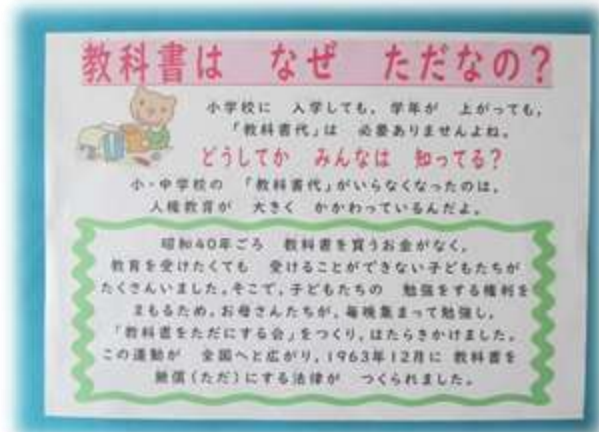 教科書は　なぜ　ただなの？
小学校に　入学しても，学年が　上がっても，
「教科書代」は　必要ありませんよね。
どうしてか　みんなは　知ってる？
小・中学校の　「教科書代」がいらなくなったのは，
人権教育が　大きく　かかわっているんだよ。
昭和40年ごろ　教科書を買うお金がなく，
教育を受けたくても　受けることができない子どもたちが
たくさんいました。そこで，子どもたちの　勉強をする権利を
まもるため，お母さんたちが，毎晩集まって勉強し，
「教科書をただにする会」をつくり，はたらきかけました。
この運動が　全国へと広がり，1963年12月に　教科書を
無償（ただ）にする法律が　つくられました。